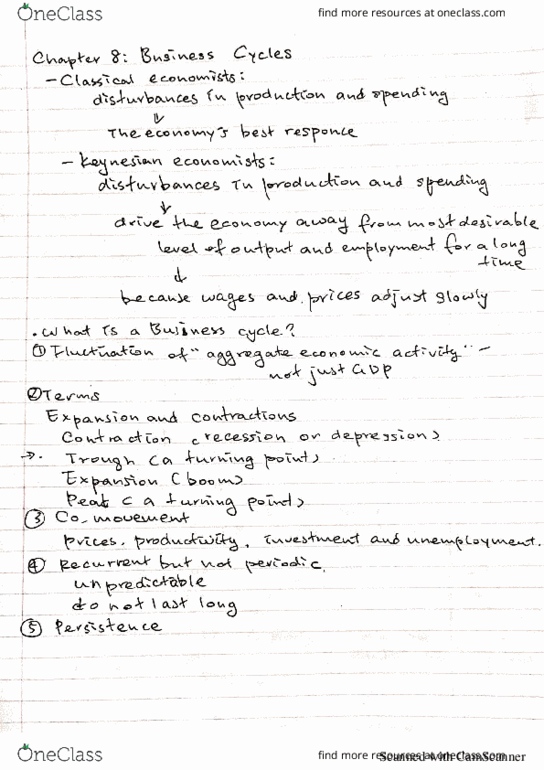 OneClass
find more resources at oneclass.com
Chapter 8: Business Cycles
- Classical economists:
disturbances in production and spending
↓
The economy's best responce
- Keynesian economists:
disturbances in production and spending
↓
drive the economy away from most desirable
level of output and employment for a long
time
↓
because wages and prices adjust slowly
. What is a Business cycle?
① Fluctination of "aggregate economic activity" -
not just GDP
② Terms
Expansion and contractions
Contraction (recession or depression)
→. Trough (a turning point)
Expansion (boom)
Peak (a turning point)
③ Co-movement
prices, productivity, investment and unemployment.
④ Recurrent but not periodic.
unpredictable
do not last long
⑤ Persistence
OneClass
find more resources at oneclass.com
Scanned with CamScanner